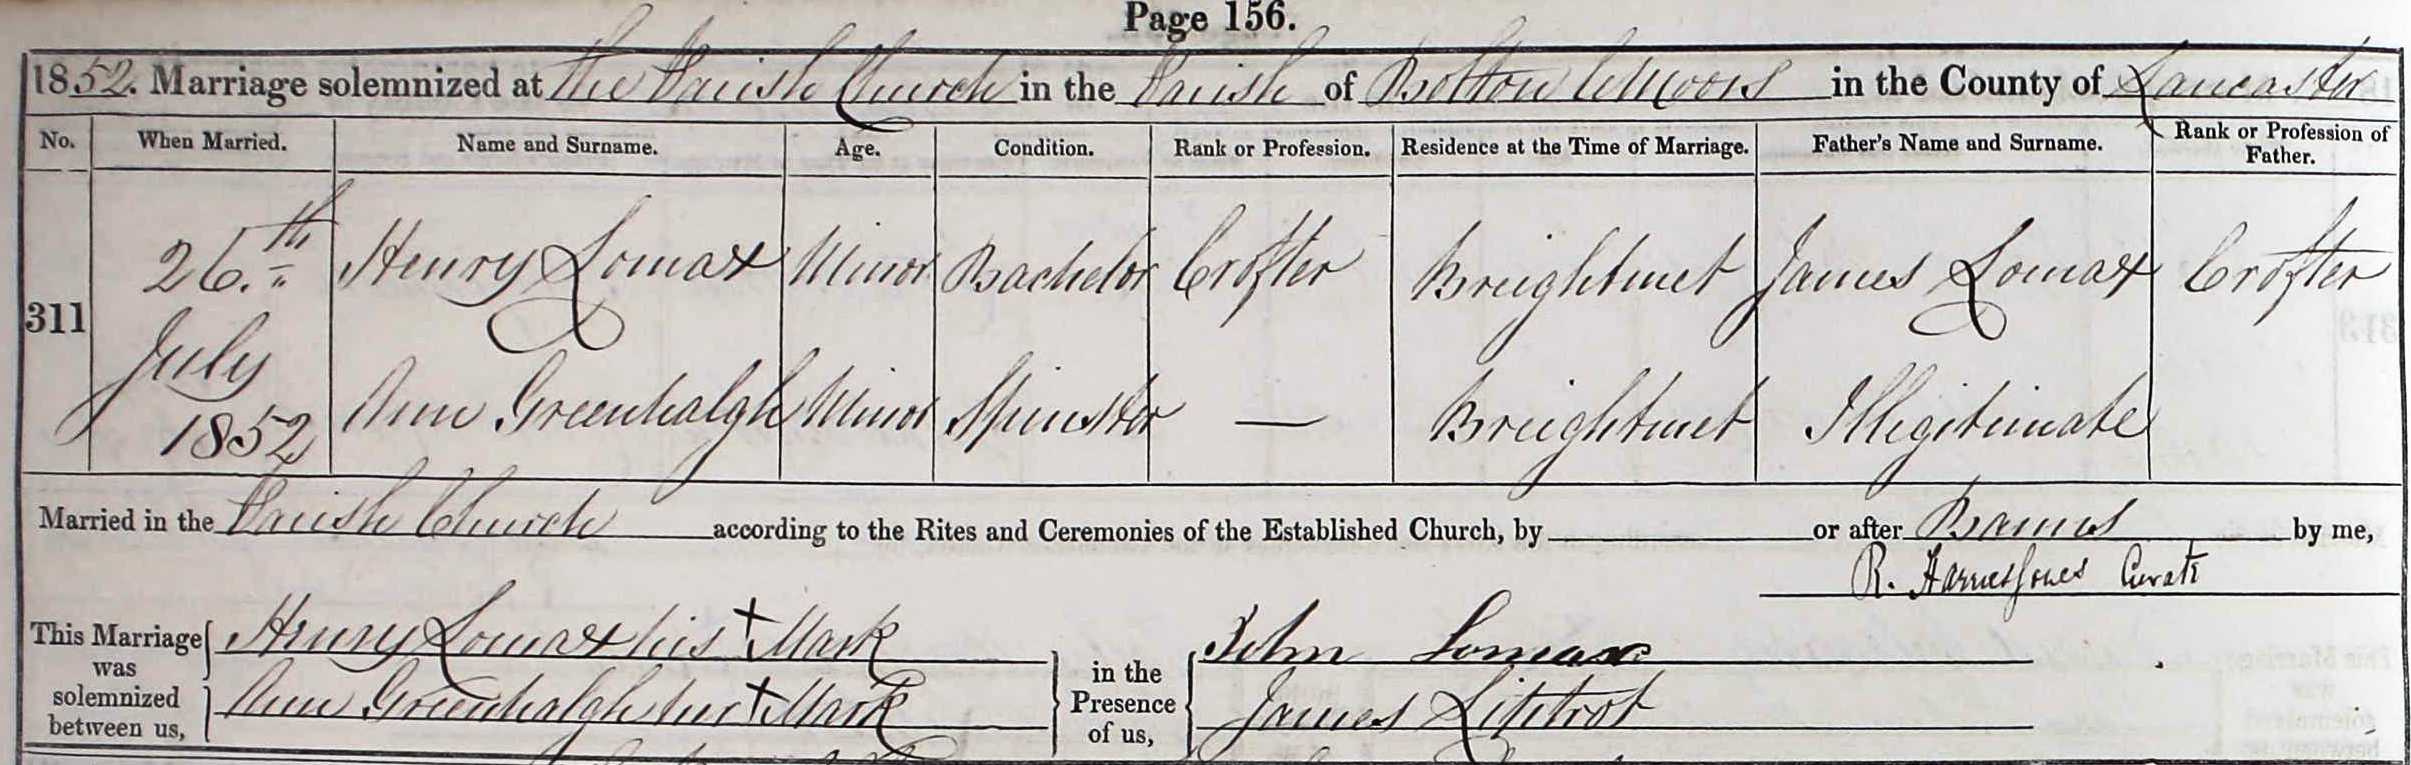 Page 156.
1852. Marriage solemnized at the Parish Church in the Parish of Bolton le Moors in the County of Lancaster
No. When Married. Name and Surname. Age. Condition. Rank or Profession. Residence at the Time of Marriage. Father's Name and Surname. Rank or Profession of Father.
311 26.th July 1852 Henry Lomax Minor Bachelor Crofter Breightmet James Lomax Crofter
Ann Greenhalgh Minor Spinster — Breightmet Illegitimate
Married in the Parish Church according to the Rites and Ceremonies of the Established Church, by or after Banns by me,
R. Curate
This Marriage was solemnized between us, Henry Lomax his + Mark in the Presence of us, John Lomax
Ann Greenhalgh her + Mark James Liptrot